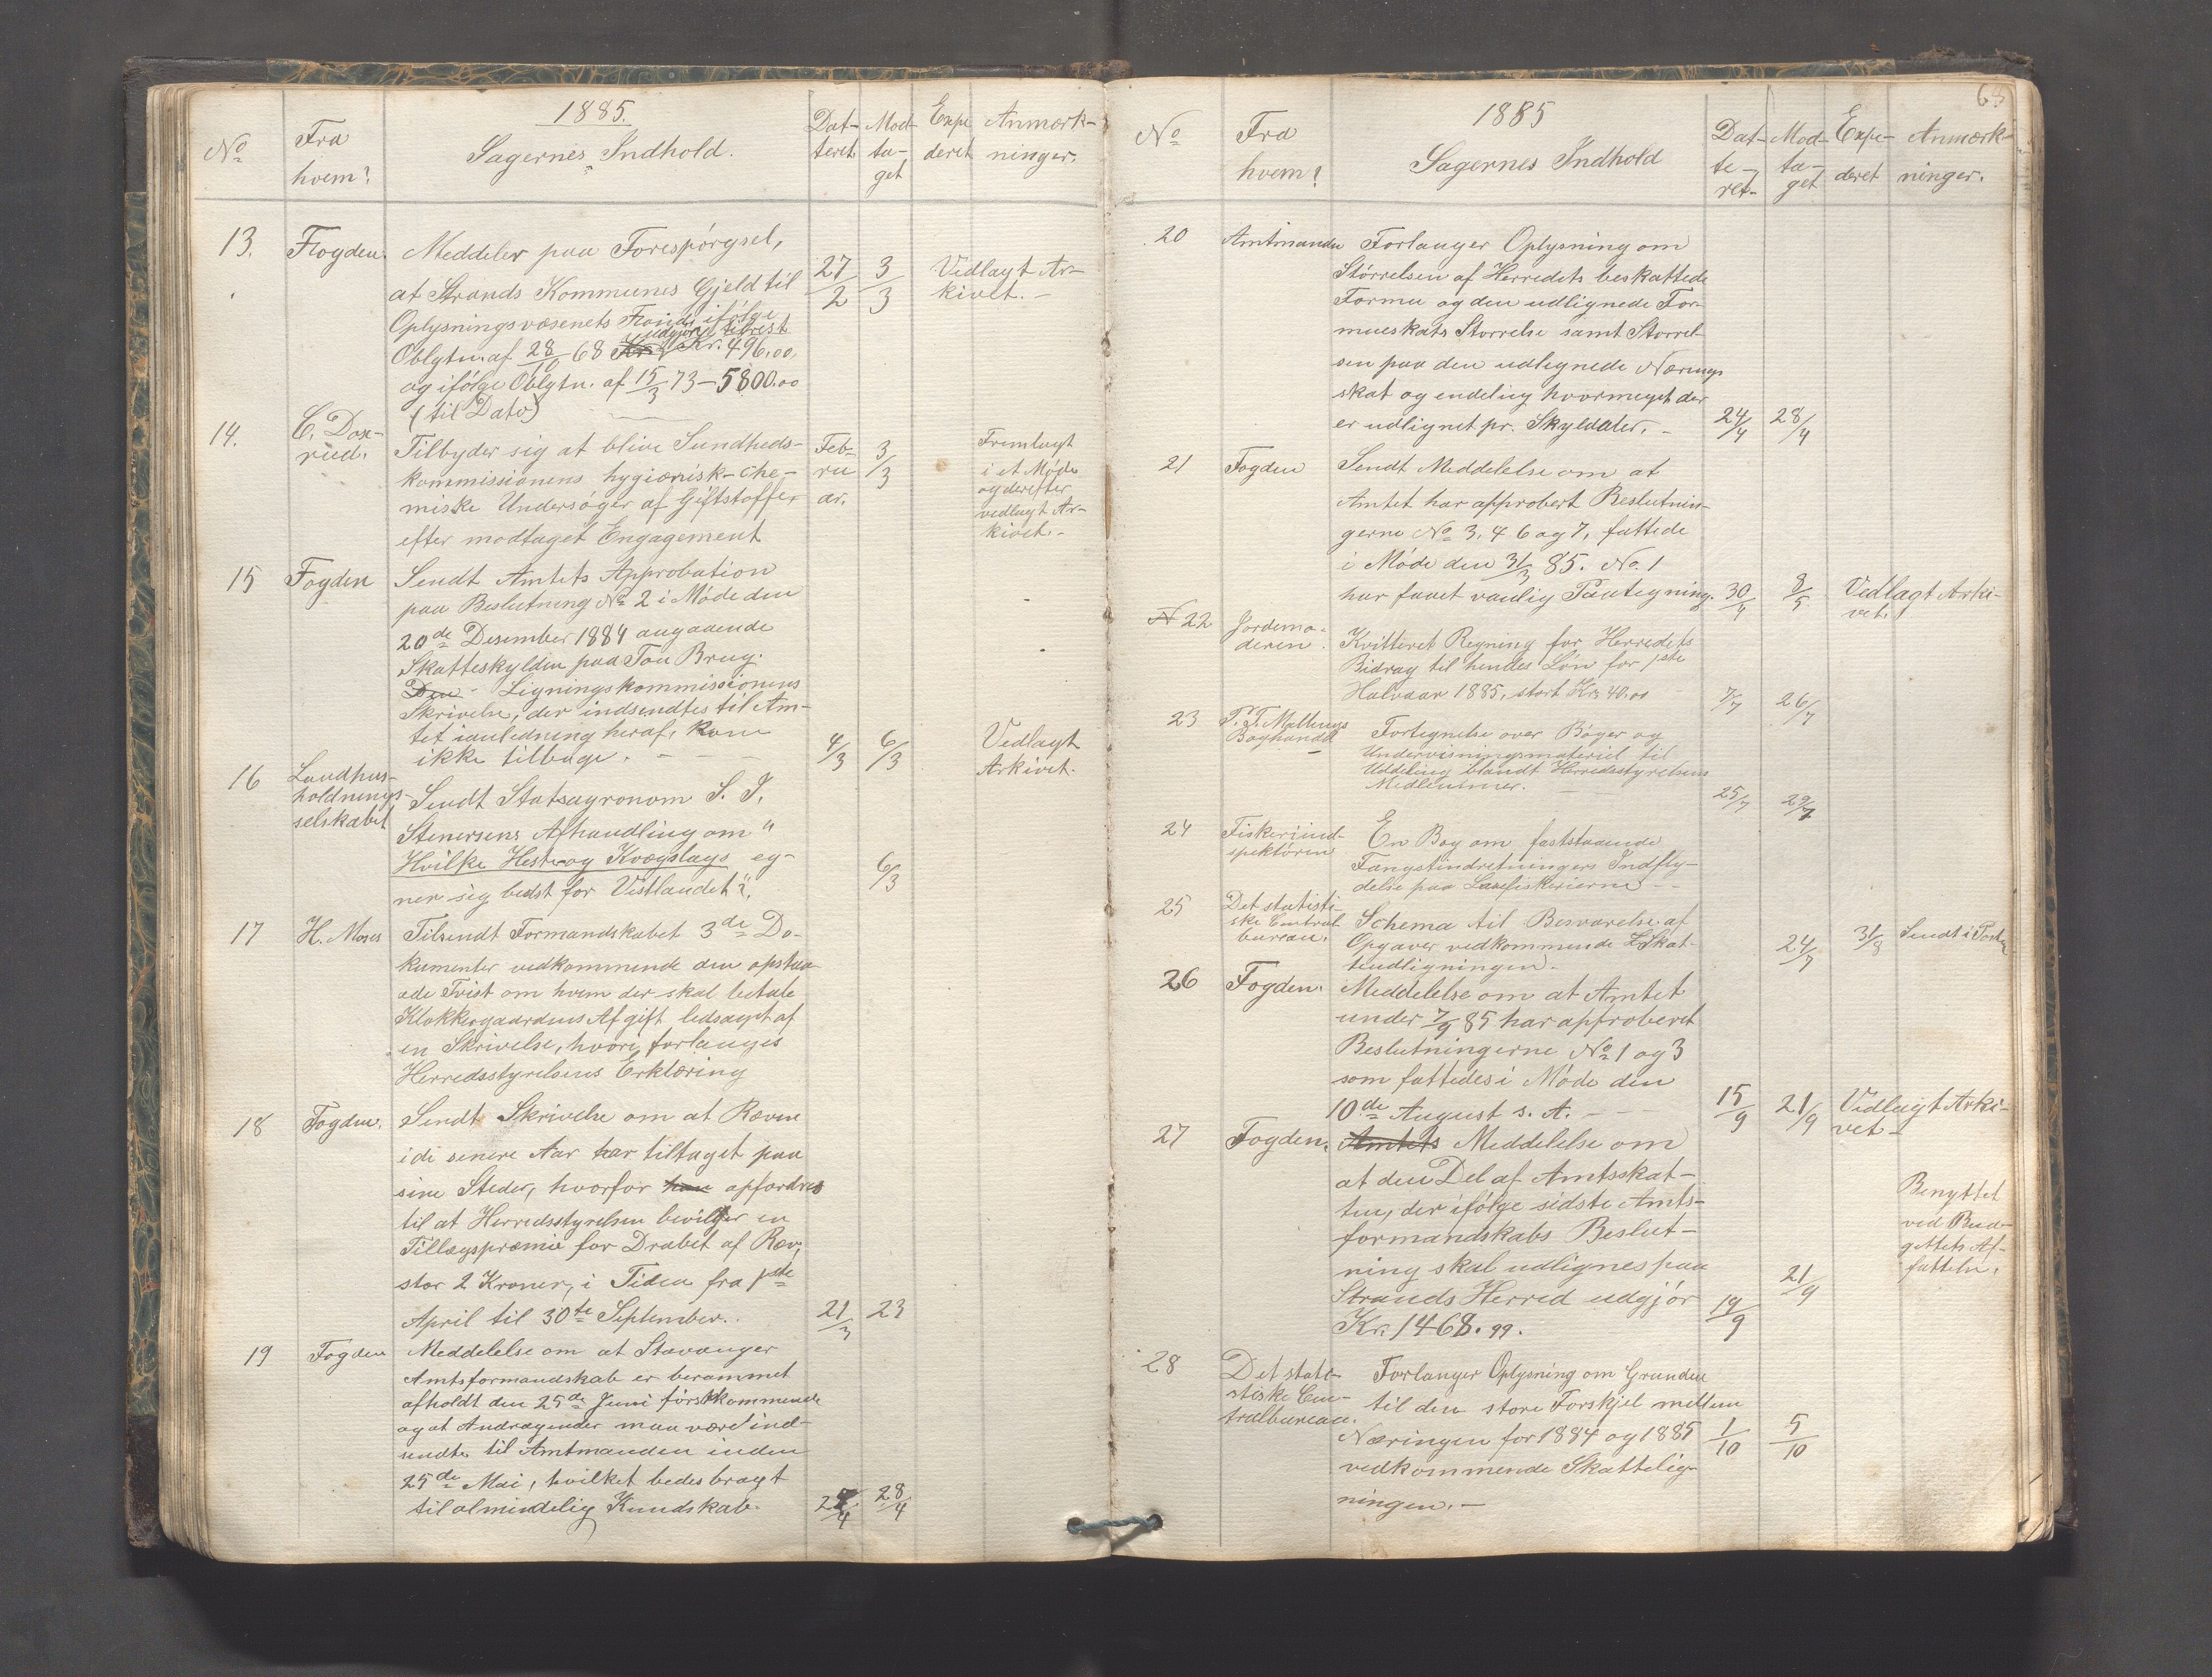 1885.
No Fra hvem? Sagernes Indhold. Dat- teret. Mod- ta- get Expe deret Anmærk- ninger.
13. Fogden. Meddeler paa Forespørgsel,
at Strands Kommunes Gjeld til 27/2 3/3 Vedlagt Ar-
kivet. –
Oplysningsvæsenets Fond ifølge
udgjør tilrest
Oblgtn. af 28/10 68 Kr. 496.00,
og ifølge Oblgtn. af 15/3 73 – 5800.00
(til Dato)
14. C. Dox- rud. Tilbyder sig at blive Sundheds- Feb- ru ar. 3/3 Fremlagt
kommissionens hygiænisk-che- i et Møde
miske Undersøger af Giftstoffer og derefter
vedlagt Ar-
efter modtaget Engagement kivet. –
15 Fogden Sendt Amtets Approbation
paa Beslutning No 2 i Møde den
20de Desember 1884 angaaende
Skatteskylden paa Tau Brug.
Den - Ligningskommissionens
Skrivelse, der indsendtes til Am-
tet ianledning heraf, kom
ikke tilbage. – – – 4/3 6/3 Vedlagt
Arkivet.
16 Landhus- holdnings- selskabet Sendt Statsagronom S. J.
Stenersens Afhandling om "
Hvilke Heste og Kvægslags eg-
ner sig bedst for Vestlandet"? 6/3
17 H. Moses Tilsendt Formandskabet 3de Do-
kumenter vedkommende den opstaa-
ede Tvist om hvem der skal betale
Klokkergaardens Afgift ledsaget af
en Skrivelse, hvori forlanges
Herredsstyrelsens Erklæring
18 Fogden. Sendt Skrivelse om at Ræven
i de senere Aar har tiltaget paa
sine Steder, hvorfor han opfordres
til at Herredsstyrelsen bevilger en
Tillægspræmie for Drabet af Ræv,
stor 2 Kroner, i Tiden fra 1ste
April til 30te September. 21/3 23
19 Fogden Meddelelse om at Stavanger
Amtsformandskab er berammet
afholdt den 25de Juni førstkommende
og at Andragender maa være ind-
sendte til Amtmanden inden
25de Mai, hvilket bedes bragt
til almindelig Kundskab. 28/4
1885
No Fra hvem? Sagernes Indhold Dat- te- ret- Mod- ta- get Expe- deret Anmærk- ninger.
20 Amtmanden Forlanger Oplysning om
Størrelsen af Herredets beskattede
Formue og den udlignede For-
mueskats Størrelse samt Størrel-
sen paa den udlignede Nærings
skat og endelig hvormeget der
er udlignet pr. Skylddaler. – 24/4 28/4
21 Fogden Sendt Meddelelse om at
Amtet har approbert Beslutnin-
gerne No 3, 4 6 og 7, fattede
i Møde den 31/3 85. No. 1
har faaet vanlig Paategning. 30/4 8/5 Vedlagt Arki-
vet.
N 22 Jordemo- deren. Kvitteret Regning for Herredets
Bidrag til hendes Løn for 1ste
Halvaar 1885, stort Kr 40.00 7/7 26/7
23 P. T. Mallings Boghandel Fortegnelse over Bøger og
Undervisningsmateriel til
Uddeling blandt Herredsstyrelsens
Medlemmer. – – 25/7 29/7
24 Fiskeriind- spektøren En Bog om faststaaende
Fangstindretningers Indfly-
delse paa Laxefiskerierne – –
25 Det statisti- ske Central bureau. Schema til Besvarelse af
Opgaver vedkommende Skat- 24/7 31/8 Sendt i Post
teudligningen.
26 Fogden. Meddelelse om at Amtet
under 7/9 85 har approberet
Beslutningerne No 1 og 3
som fattedes i Møde den
10de August s. A. – – 15/9 21/9 Vedlagt Arki-
vet –
27 Fogden. Amtets Meddelelse om
at den Del af Amtsskat-
ten, der ifølge sidste Amts- Benyttet
formandskabs Beslut- ved Bud-
gettets Af-
ning skal udlignes paa 21/9 fattelse.
Strands Herred udgjør 19/9
Kr. 1468.99.
28 Det stati- stiske Cen- tralbureau. Forlanger Oplysning om Grunden
til den store Forskjel mellem
Næringen for 1884 og 1885 1/10 5/10
vedkommende Skattelig-
ningen. –